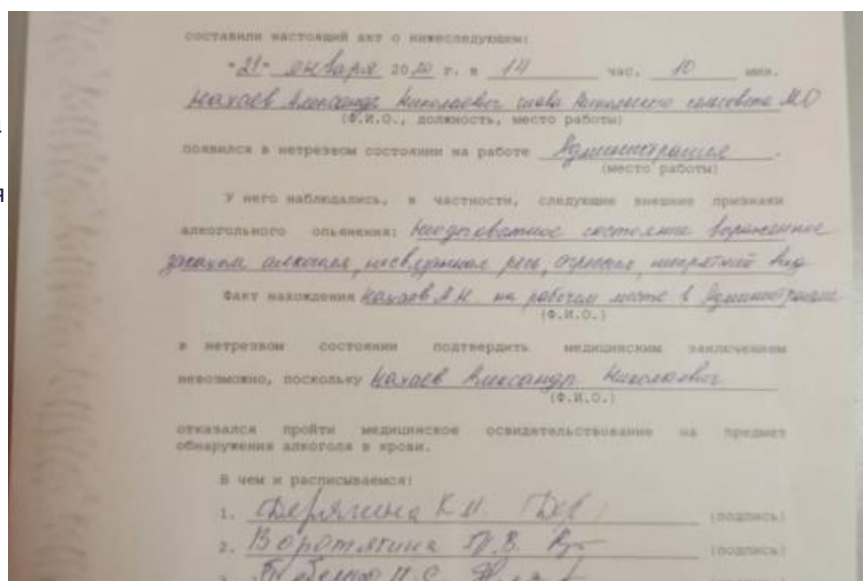 я
составили настоящий акт о нижеследующем:
"21" января 2020 г. в 14 час. 10 мин.
Нахаев Александр Николаевич глава Никольского сельсовета МО
(Ф.И.О., должность, место работы)
появился в нетрезвом состоянии на работе Администрация.
(место работы)
У него наблюдались, в частности, следующие внешние признаки
алкогольного опьянения: Неадекватное состояние
запахом алкоголя, несвязанная речь, агрессия, неопрятный вид
Факт нахождения Нахаев А.Н. на рабочем месте в Администрации
(Ф.И.О.)
в нетрезвом состоянии подтвердить медицинским заключением
невозможно, поскольку Нахаев Александр Николаевич
(Ф.И.О.)
отказался пройти медицинское освидетельствование на предмет
обнаружения алкоголя в крови.
В чем и расписываемся:
1. Дерягина К.И. Дер (подпись)
2. Воротягина В. (подпись)